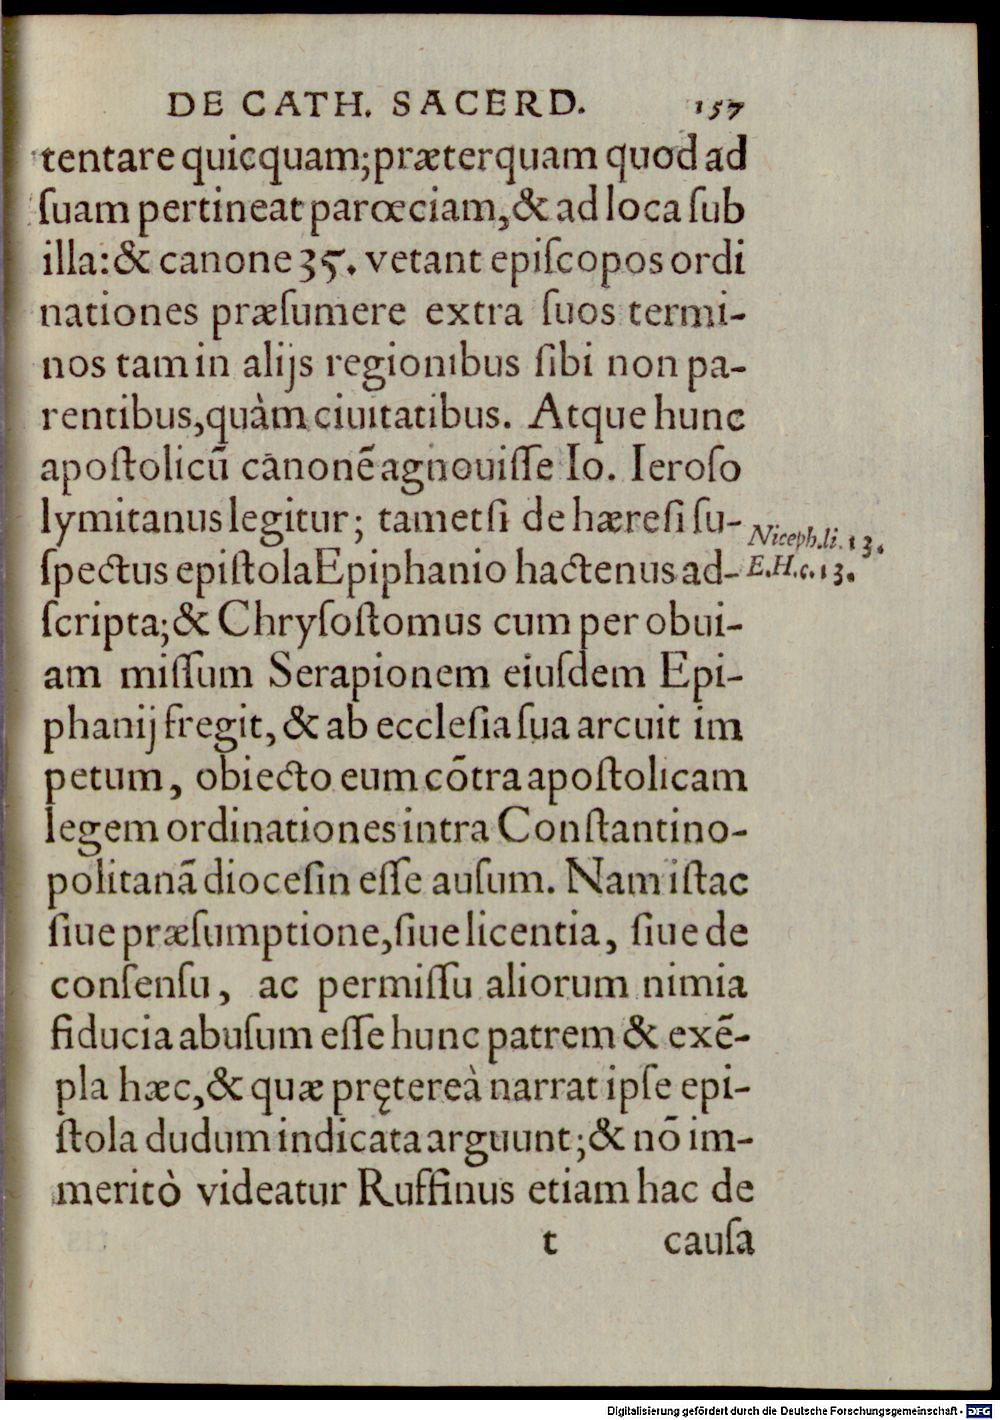 DE CATH. SACERD. 157
tentare quicquam; præterquam quod ad
ſuam pertineat parœciam, & ad loca ſub
illa: & canone 35. vetant epiſcopos ordi
nationes præſumere extra ſuos termi-
nos tam in alijs regionibus ſibi non pa-
rentibus, quàm ciuitatibus. Atque hunc
apoſtolicū cànonē agnouiſſe Io. Ieroſo
lymitanus legitur; tametſi de hæreſi ſu-
Niceph. li. 13.
ſpectus epiſtola Epiphanio hactenus ad-
E.H.c.13.
ſcripta; & Chryſoſtomus cum per obui-
am miſſum Serapionem eiuſdem Epi-
phanij fregit, & ab eccleſia ſua arcuit im
petum, obiecto eum cōtra apoſtolicam
legem ordinationes intra Conſtantino-
politanā dioceſin eſſe auſum. Nam iſtac
ſiue præſumptione, ſiue licentia, ſiue de
conſenſu, ac permiſſu aliorum nimia
fiducia abuſum eſſe hunc patrem & exē-
pla hæc, & quæ pręterеà narrat ipſe epi-
ſtola dudum indicata arguunt; & nō im-
meritò videatur Ruffinus etiam hac de
t causa
Digitalisierung gefördert durch die Deutsche Forschungsgemeinschaft - DFG